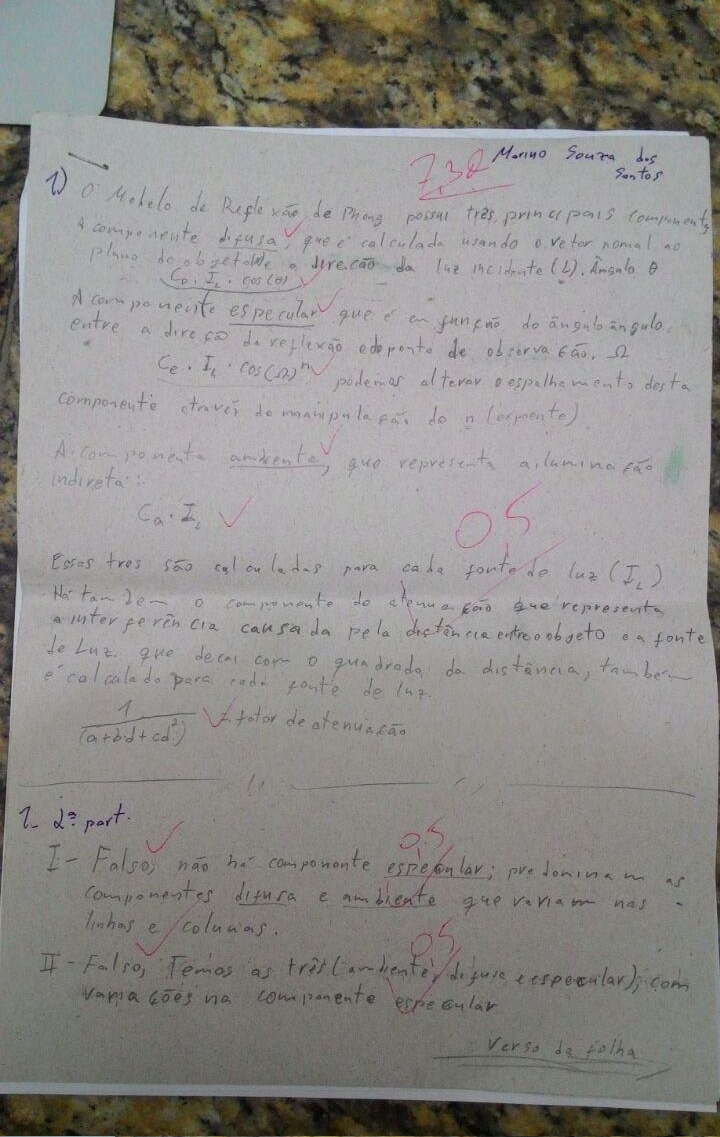 7,30
Marino Souza dos
Santos
1) O Modelo de Reflexão de Phong possui três principais componentes
A componente difusa, que é calculada usando o vetor nomal ao
plano do objeto e a direcão da luz incidente (L). Ângulo θ
CD . IL . cos(θ)
A componente especular que é em função do ângulo ângulo
entre a direção da reflexão e do ponto de observação. Ω
Ce . IL . cos(Ω)^n podemos alterar o espalhamento desta
componente através da manipulação do n (expoente).
A componente ambiente, que representa a iluminação
indireta:
Ca . IL
0,5
Essas tres são calculadas para cada fonte de luz (IL)
Há tambem o componente de atenuação que representa
a interferência causada pela distância entre o objeto e a fonte
de Luz. que decai com o quadrado da distância, também
é calculado para cada fonte de luz.
1/(a+bd+cd²) fator de atenuação
1- 2ª part.
0,5
I - Falso, não há componente especular; predominam as
componentes difusa e ambiente que variam nas
linhas e colunas.
0,5
II - Falso, Temos as três (ambiente, difusa e especular), com
variações na componente especular
Verso da folha